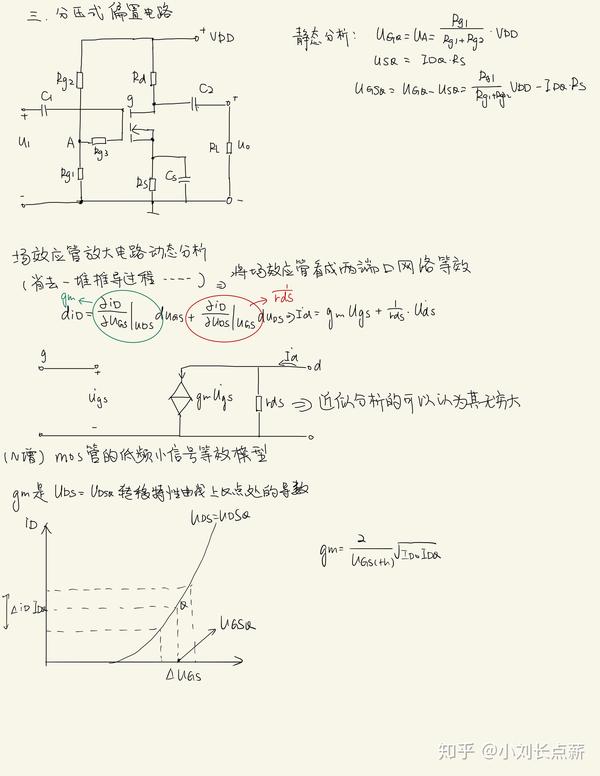 三. 分压式偏置电路
+VDD
Rg2
Rd
C1
g
C2
+
+
U1
A
Rg3
RL
Uo
Rg1
Rs
Cs
-
-
静态分析: UGQ = UA = Rg1/(Rg1+Rg2) · VDD
USQ = IDQ·RS
UGSQ = UGQ - USQ = Rg1/(Rg1+Rg2) VDD - IDQ·RS
场效应管放大电路动态分析
(省去一堆推导过程 ……) ⇒ 将场效应管看成两端口网络等效
gm
1/rds
diD = ∂iD/∂UGS|UDS dUGS + ∂iD/∂UDS|UGS dUDS ⇒ İd = gm U̇gs + 1/rds · U̇ds
g
+
U̇gs
-
gm U̇gs
rds
İd
d
⇒ 近似分析的可以认为其无穷大
(N增) mos管的低频小信号等效模型
gm是 UDS = UDSQ 转移特性曲线上Q点处的导数
iD
UDS=UDSQ
ΔiD
IDQ
Q
UGSQ
ΔUGS
gm = 2/UGS(th) √(IDO IDQ)
知乎 @小刘长点薪